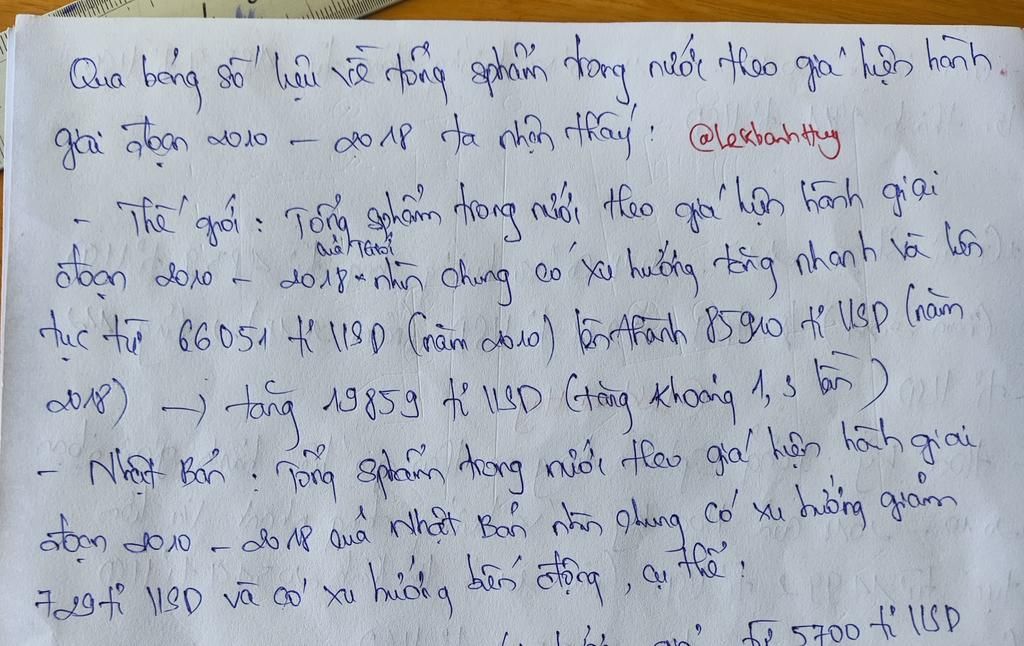 Qua bảng số liệu về tổng sphẩm trong nước theo giá hiện hành
giai đoạn 2010 - 2018 ta nhận thấy: @LeKhanhHuy
- Thế giới: Tổng sphẩm trong nước theo giá hiện hành giai
của TGiới
đoạn 2010 - 2018 nhìn chung có xu hướng tăng nhanh và liên
tục từ 66051 tỉ USD (năm 2010) lên thành 85910 tỉ USD (năm
2018) → tăng 19859 tỉ USD (tăng khoảng 1,3 lần)
- Nhật Bản: Tổng sphẩm trong nước theo giá hiện hành giai
đoạn 2010 - 2018 của Nhật Bản nhìn chung có xu hướng giảm
729 tỉ USD và có xu hướng biến động, cụ thể:
từ 5700 tỉ USD